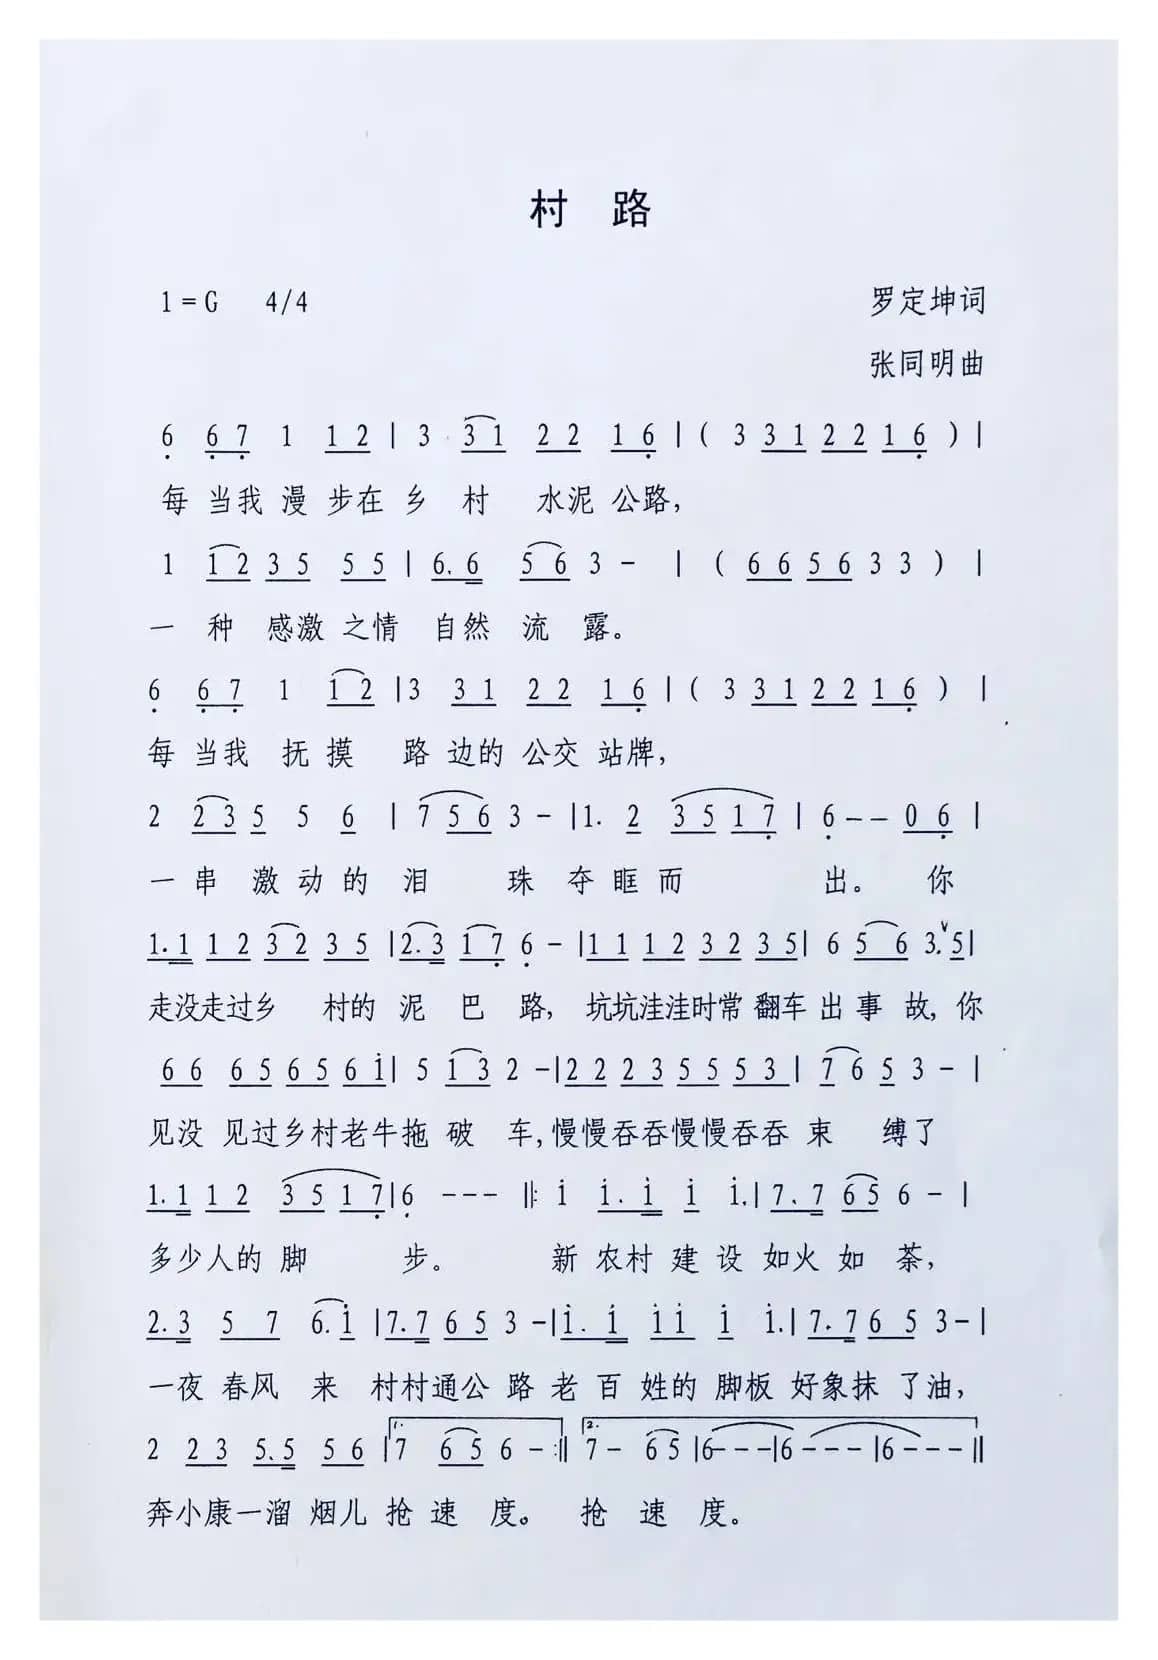 村 路
1=G 4/4 罗定坤词
张同明曲
6 6 7 1 1 2 | 3 3 1 2 2 1 6 | ( 3 3 1 2 2 1 6 ) |
每 当我 漫 步在 乡 村 水泥 公路，
1 1 2 3 5 5 5 | 6. 6 5 6 3 - | ( 6 6 5 6 3 3 ) |
一 种 感激 之情 自然 流 露。
6 6 7 1 1 2 | 3 3 1 2 2 1 6 | ( 3 3 1 2 2 1 6 ) |
每 当我 抚 摸 路 边的 公交 站牌，
2 2 3 5 5 6 | 7 5 6 3 - | 1. 2 3 5 1 7 | 6 - - 0 6 |
一 串 激 动 的 泪 珠 夺 眶 而 出。 你
1. 1 1 2 3 2 3 5 | 2. 3 1 7 6 - | 1 1 1 2 3 2 3 5 | 6 5 6 3. 5 |
走没走过乡 村的 泥 巴 路， 坑坑洼洼时常 翻车 出 事 故，你
6 6 6 5 6 5 6 i | 5 1 3 2 - | 2 2 2 3 5 5 5 3 | 7 6 5 3 - |
见没 见过乡村老牛拖 破 车，慢慢吞吞慢慢吞吞 束 缚了
1. 1 1 2 3 5 1 7 | 6 - - - ‖: i i. i i i. | 7. 7 6 5 6 - |
多少人的 脚 步。 新 农村 建 设 如火 如 荼，
2. 3 5 7 6. i | 7. 7 6 5 3 - | i. i i i i i. | 7. 7 6 5 3 - |
一夜 春风 来 村村通公 路 老 百 姓的 脚板 好象抹 了油，
2 2 3 5. 5 5 6 | 1. 7 6 5 6 - :‖ 2. 7 - 6 5 | 6 - - - | 6 - - - | 6 - - - ‖
奔小康一溜 烟儿 抢 速 度。 抢 速 度。